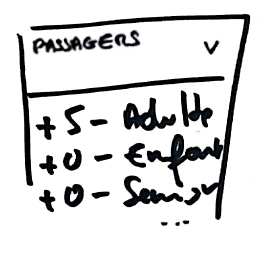 PASSAGERS V
+ 5 - Adulte
+ 0 - Enfant
+ 0 - Senior
...